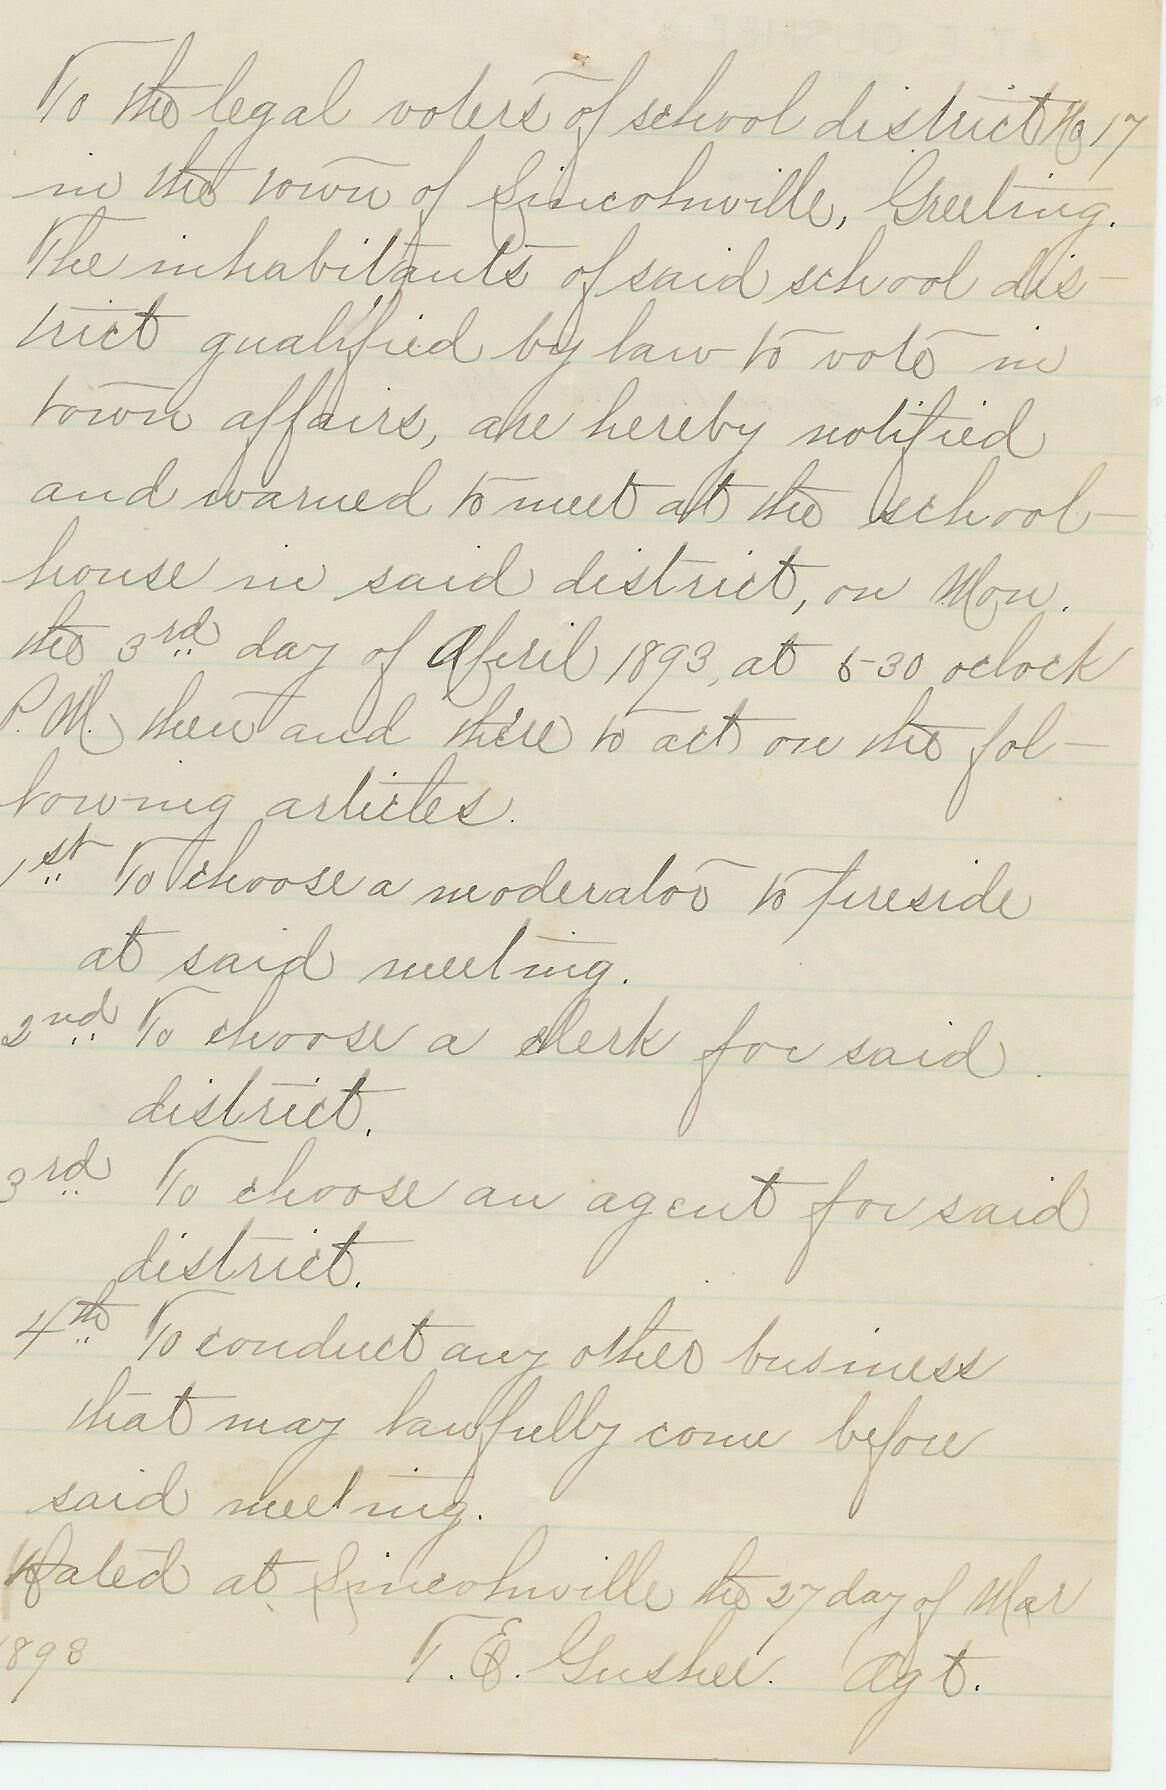 To the legal voters of school district No 17
in the town of Lincolnville, Greeting.
The inhabitants of said school dis-
trict qualified by law to vote in
town affairs, are hereby notified
and warned to meet at the school-
house in said district, on Mon.
the 3rd day of April 1893, at 6-30 oclock
P.M. then and there to act on the fol-
lowing articles.
1st To choose a moderator to preside
at said meeting.
2nd To choose a clerk for said
district.
3rd To choose an agent for said
district.
4th To conduct any other business
that may lawfully come before
said meeting.
Dated at Lincolnville the 27 day of Mar
1893
T. E. Gushee. Agt.